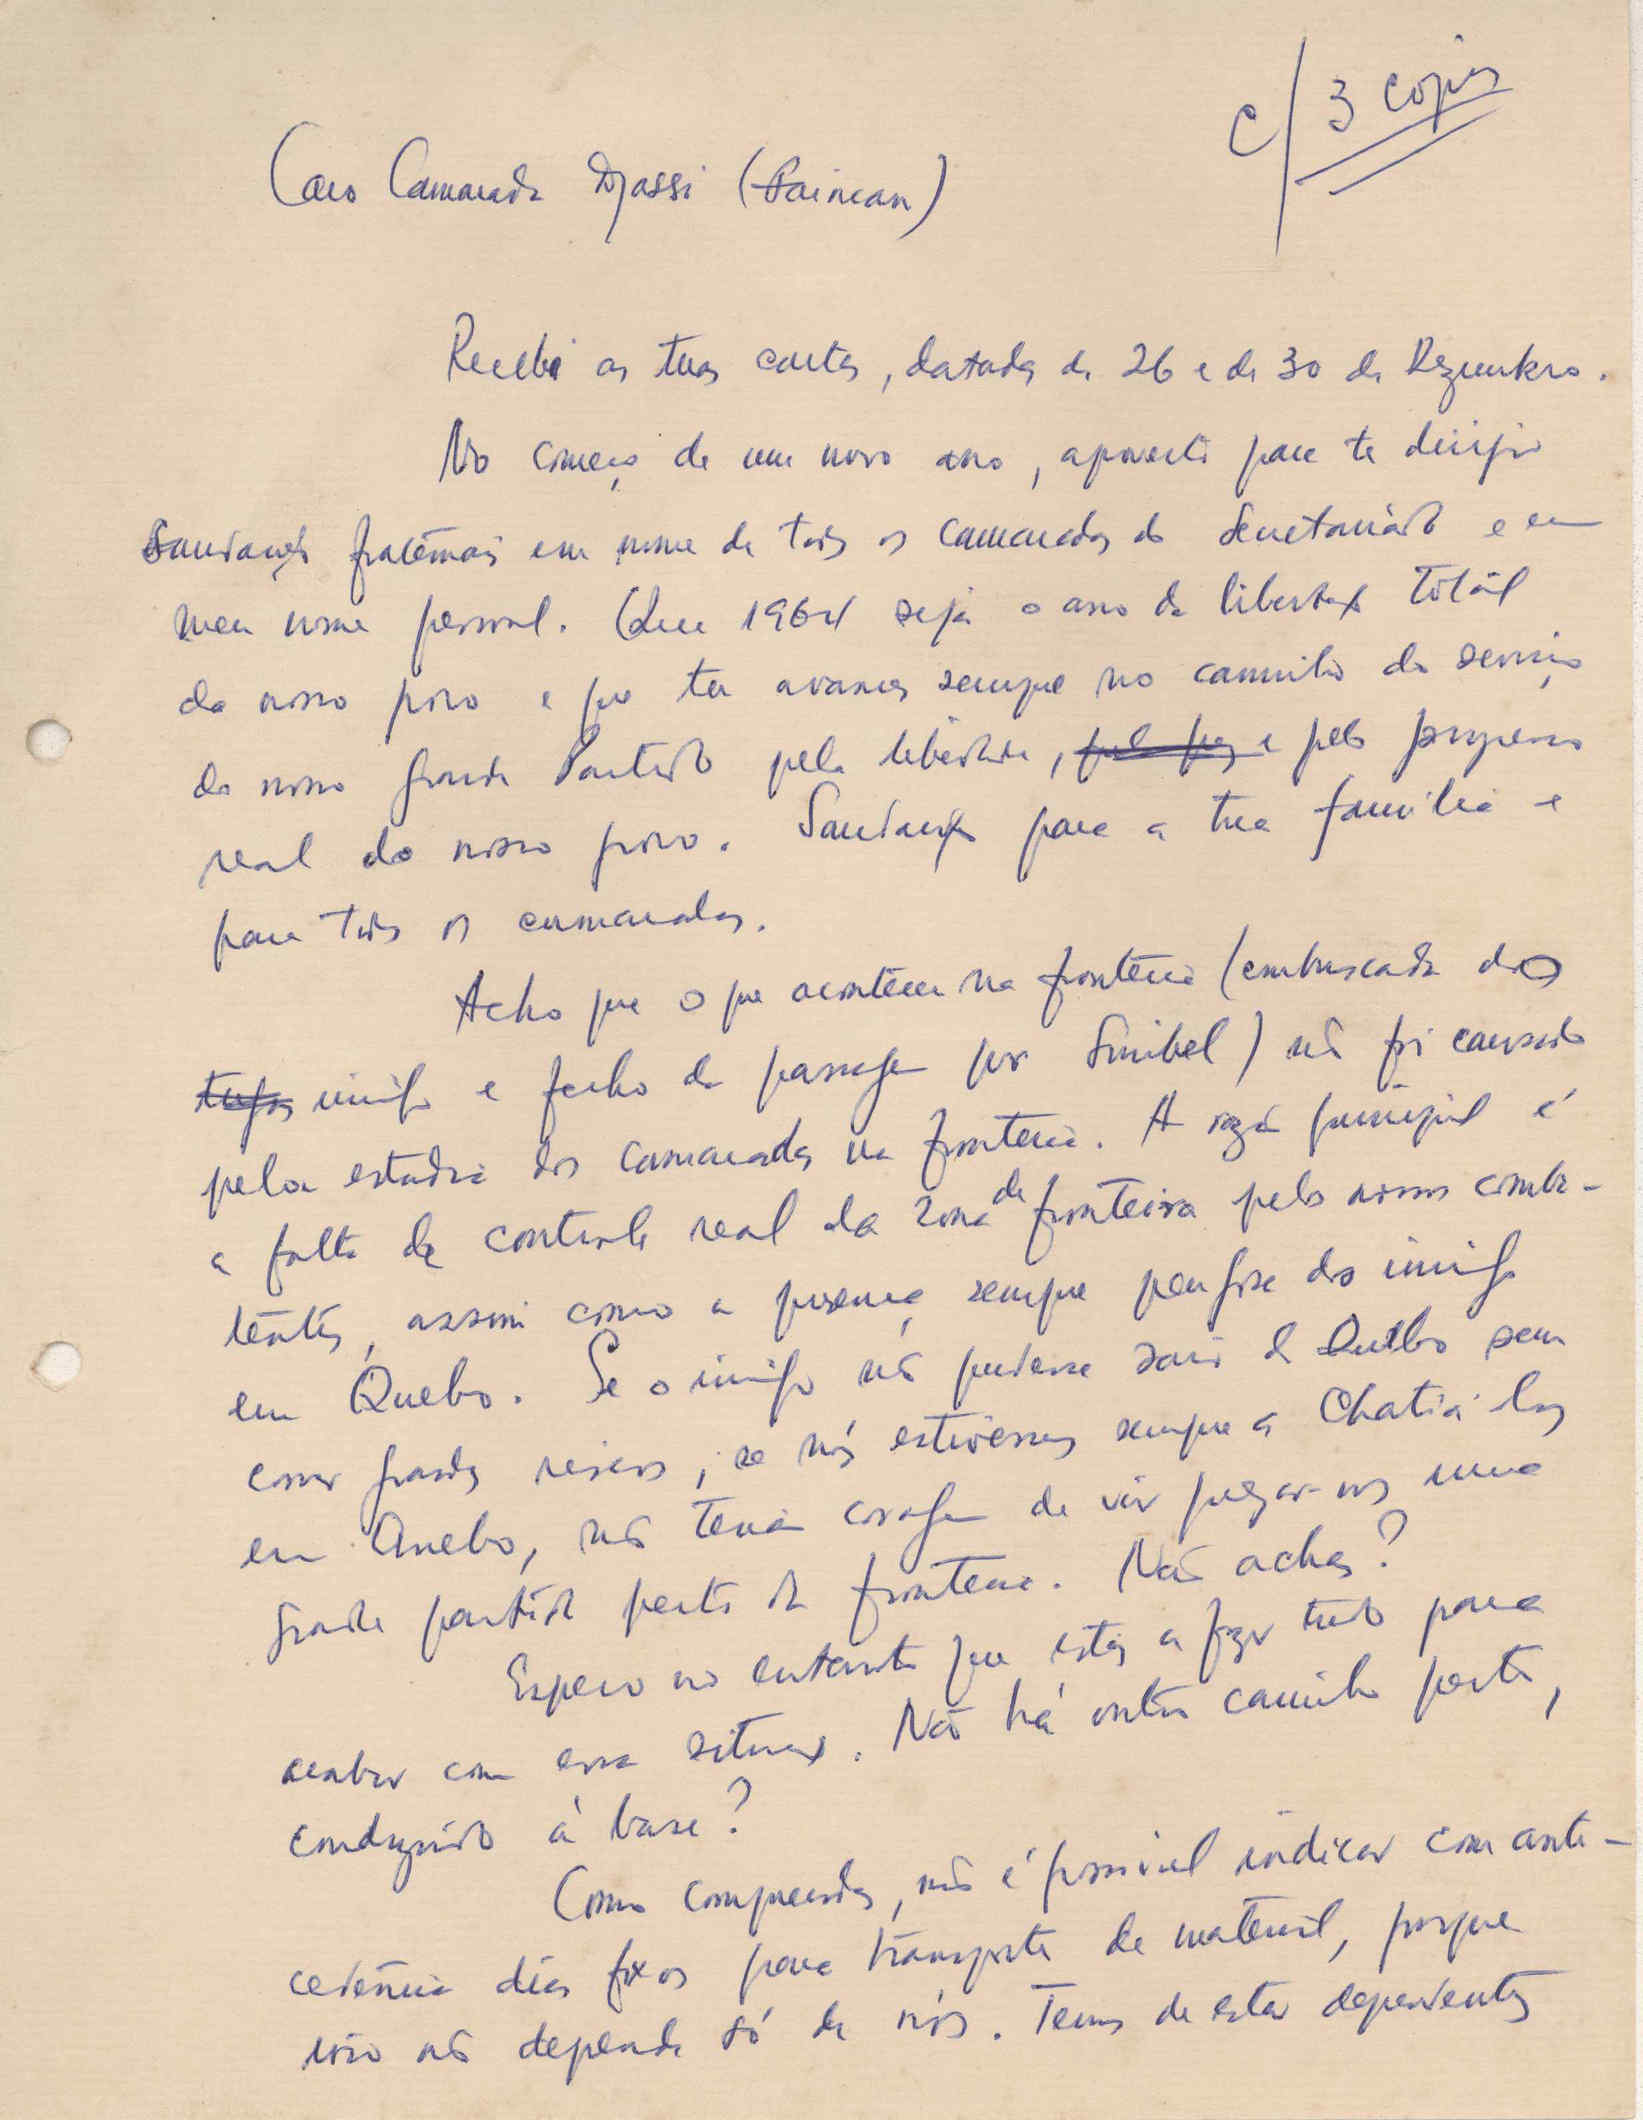 c/ 3 copias
Caro Camarada Djassi (Gainean)
Recebi as tuas cartas, datadas de 26 e de 30 de Dezembro.
No começo de um novo ano, aproveito para te dirigir
saudações fraternais em nome de todos os camaradas do Secretariado e em
meu nome pessoal. Que 1964 seja o ano da libertação total
do nosso povo e que tu avances sempre no caminho do serviço
do nosso grande Partido pela liberdade, pela paz e pelo progresso
real do nosso povo. Saudações para a tua família e
para todos os camaradas.
Acho que o que aconteceu na fronteira (embuscada dos
tugas inimigo e fecho da passagem por Simbel) não foi causado
pela estadia dos camaradas na fronteira. A razão principal é
a falta de controle real da zona de fronteira pelos nossos comba-
tentes, assim como a presença sempre perigosa dos inimigo
em Quebo. Se o inimigo não pudesse sair de Quebo sem
correr grandes riscos, se nós estivessemos sempre a chatiá-los
em Quebo, não teria coragem de vir pregar-nos uma
grande partida perto da fronteira. Não achas?
Espero no entanto que estás a fazer tudo para
acabar com essa situação. Não há outro caminho perto,
conduzindo à base?
Como compreendes, não é possível indicar com ante-
cedência dias fixos para transporte de material, porque
isso não depende só de nós. Temos de estar dependentes